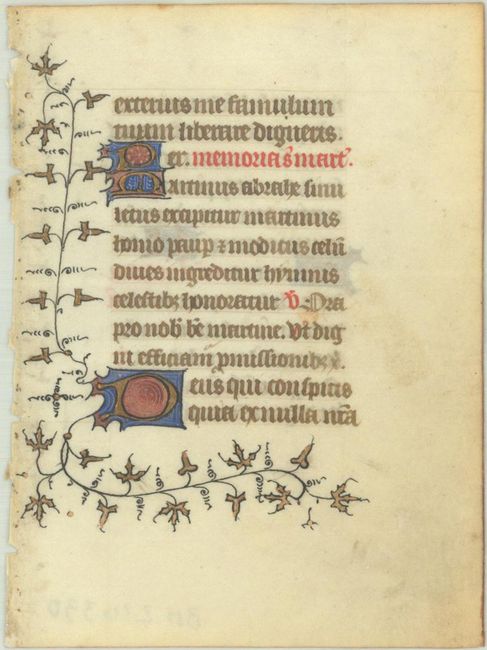 exterius me famulum
tuum liberare digneris.
Per. memoria s̄ mart̄.
Martinus abrahe sinu
letus excipitur martinus
homo paup ⁊ modicus celū
diues ingreditur hymnis
celestibꝫ honoratur V̄ Ora
pro nob̄ bē martine. Vt dig
ni efficiam̄ ꝓmissionibꝫ x̄.
Deus qui conspicis
quia ex nulla nr̄a